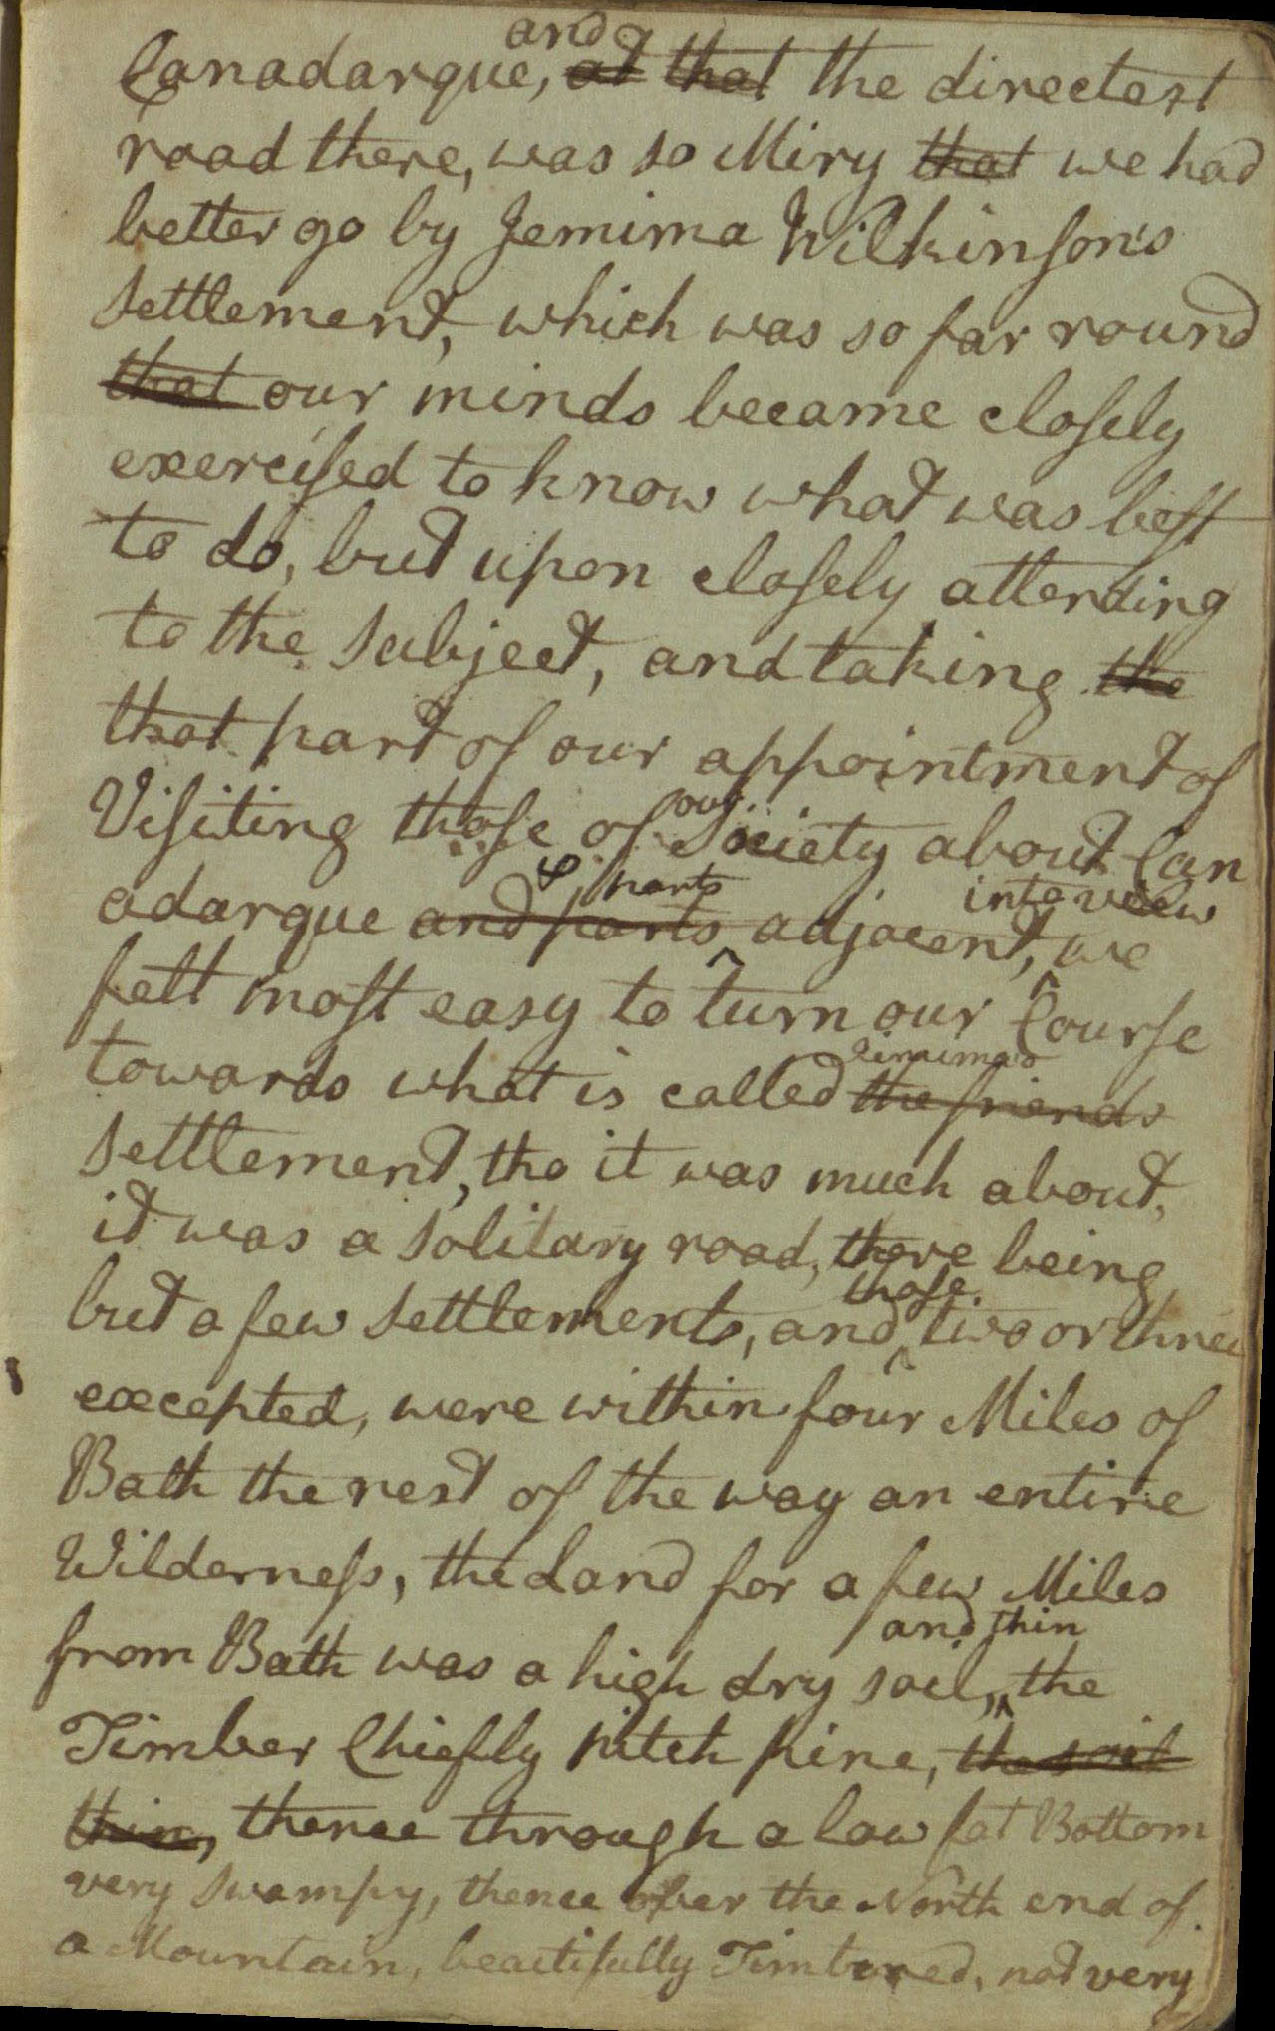 Canadarque, and ~~at that~~ the directest
road there, was so Miry ~~that~~ we had
better go by Jemima Wilkinson's
Settlement, which was so far round
~~that~~ our minds became closely
exercised to know what was best
to do, but upon closely attending
to the Subject, and taking ~~the~~
that part of our appointment of
Visiting those of our Society about Can
adarque ~~and parts~~ & parts adjacent, into view we
felt most easy to turn our Course
towards what is called ~~the friends~~ Jimima's
Settlement, tho it was much about,
it was a Solitary road, there being
but a few Settlements, and those two or three
excepted, were within four Miles of
Bath the rest of the way an entire
Wilderness, the Land for a few Miles
from Bath was a high dry soil, and thin the
Timber Chiefly pitch pine, ~~the soil~~
~~thin,~~ thence through a low fat Bottom
very Swampy, thence over the North end of
a Mountain, beautifully Timbered, not very